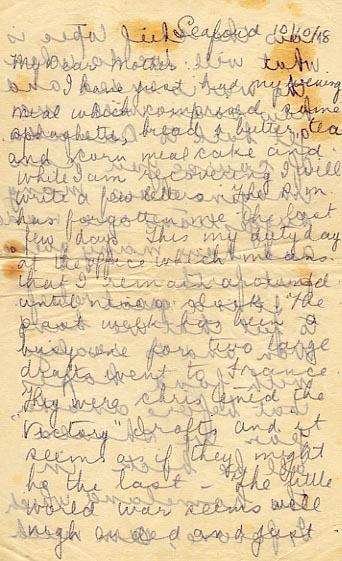 Seaford 10/10/18
My Dear Mother:
I have just had my evening
meal which comprised some
spaghetti, bread & butter, tea
and corn meal cake and
while I am recovering I will
write a few letters. The P.M.
has forgotten me the last
few days. This my duty day
at the office which means
that I remain around
until nine o'clock. The
past week has been a
busy one for two large
drafts went to France.
They were christened the
"Victory" drafts and it
seems as if they might
be the last - The little
world war seems well
nigh ended and just